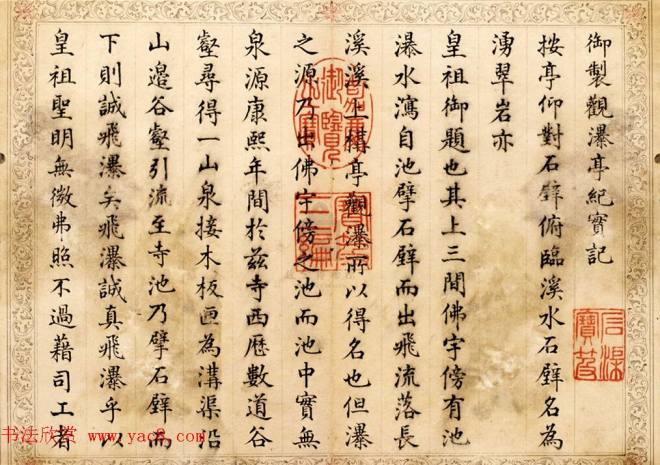 御製觀瀑亭紀實記
按亭仰對石壁俯臨溪水石壁名為
湧翠岩亦
皇祖御題也其上三間佛宇傍有池
瀑水瀉自池擘石壁而出飛流落長
溪溪上構亭觀瀑所以得名也但瀑
之源乃出佛宇傍之池而池中實無
泉源康熙年間於茲寺西歷數道谷
壑尋得一山泉接木板匣為溝渠沿
山邉谷壑引流至寺池乃擘石壁而
下則誠飛瀑矣飛瀑誠真飛瀑乎以
皇祖聖明無微弗照不過藉司工者
书法欣赏 www.yac8.com